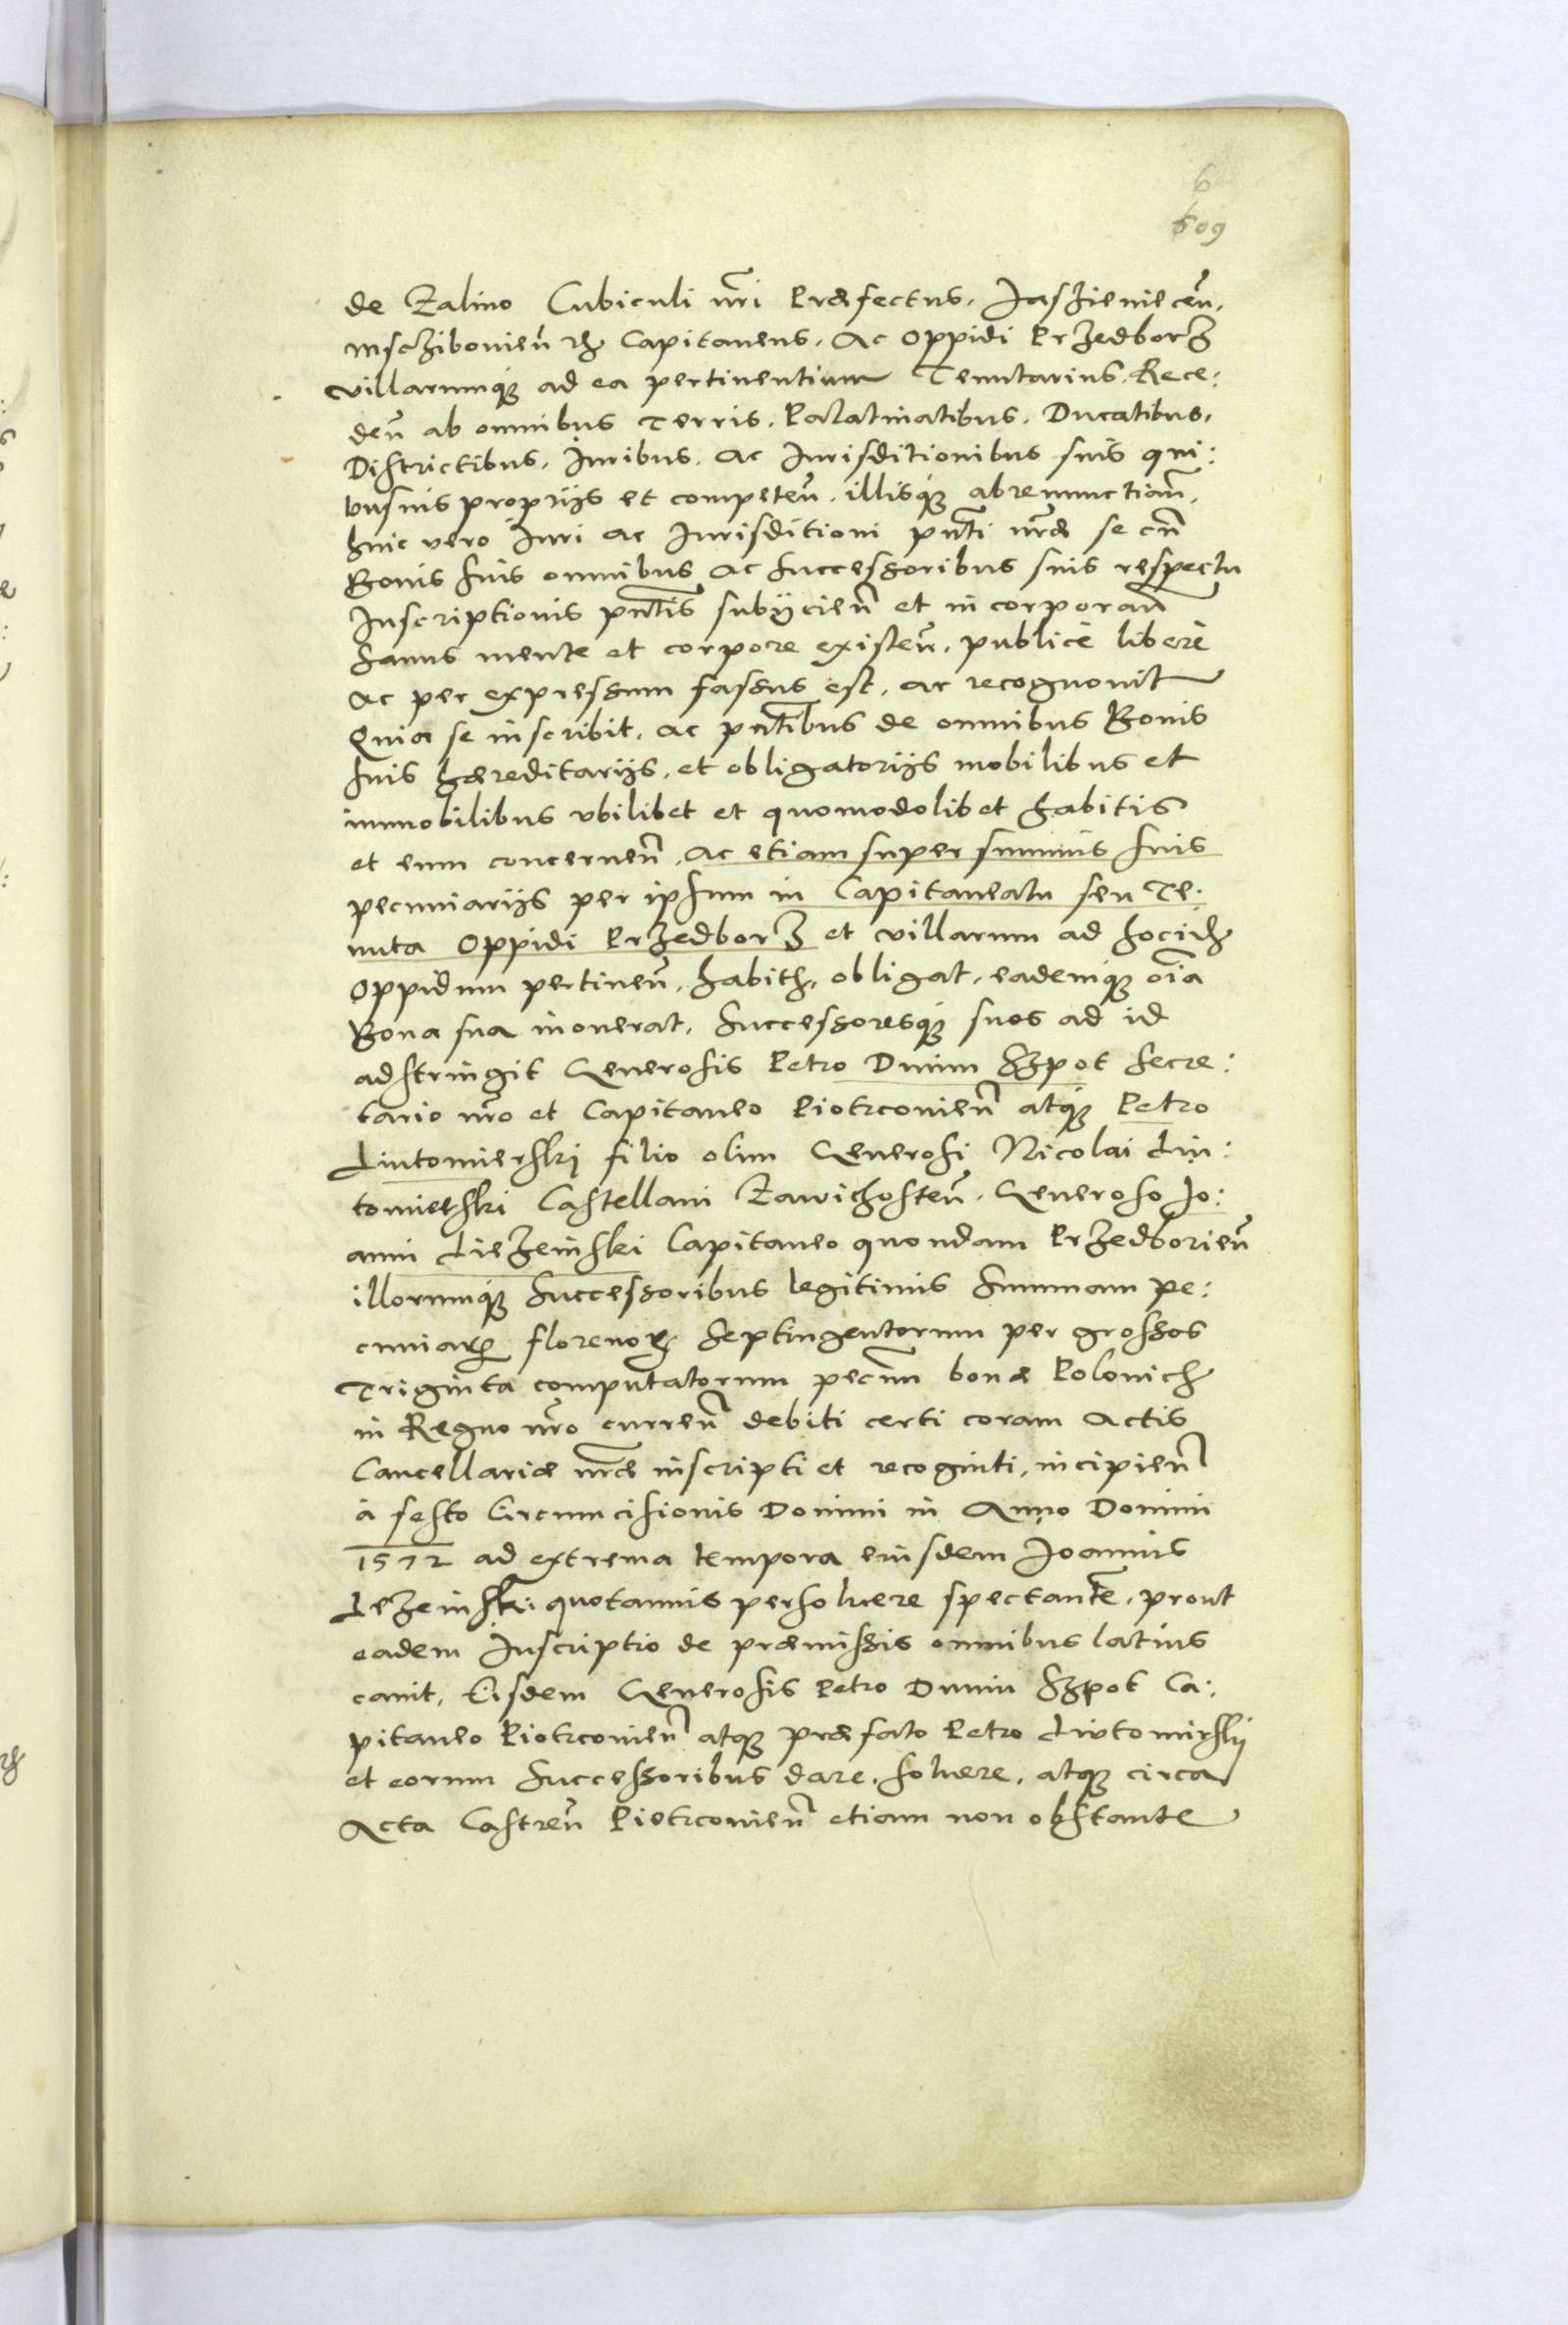 6
609
de Zalino Cubiculi nr̃i Præfectus. Jaszienieceñ.
Msczibovieñ ꝛc Capitaneus. Ac Oppidi Przedborz
villarumq̃ ad ea pertinentium Tenutarius. Rece:
deñ ab omnibus Terris. Palatinatibus. Ducatibus.
Districtibus. Juribus. Ac Jurisditionibus suis qui:
busuis proprijs et competeñ. illisq̃ abrenunctiañ.
huic vero Juri ac Jurisditioni pñti nr̃æ se cũ
Bonis suis omnibus ac successoribus suis respectu
Inscriptionis pñtis subijcieñ et incorporañ
Sanus mente et corpore existeñ. publicè liberè
ac per expressum fassus est. ac recognouit
Quia se inscribit. ac pñtibus de omnibus Bonis
suis hæreditarijs. et obligatorijs mobilibus et
immobilibus vbilibet et quomodolibet habitis
et eum concerneñ. ac etiam super summis suis
pecuniarijs per ipsum in Capitaneatu seu Te:
nuta Oppidi Przedborz et villarum ad
Oppidum pertineñ. habitis, obligat. eademq̃ oĩa
Bona sua inonerat. Successoresq̃ suos ad id
adstringit Generosis Petro Dunin Szpot Secre:
tario nr̃o et Capitaneo Piotrcovieñ atq̃ Petro
Liutomierskj filio olim Generosi Nicolai Liu:
tomierski Castellani Zawichosteñ. Generoso Jo:
anni Liezeinski Capitaneo quondam Przedborieñ
illorumq̃ Successoribus legitimis Summam pe:
cuniarꝝ florenoꝝ Septingentorum per grossos
Triginta computatorum pecuñ bonæ Polonicꝭ
in Regno nr̃o curreñ debiti certi coram Actis
Cancellariæ nr̃æ inscripti et recogniti, incipieñ
à festo Circumcisionis Domini in Anno Domini
1572 ad extrema tempora eiusdem Joannis
Lezeinski quotannis persoluere spectante. prout
eadem Inscriptio de præmissis omnibus latius
canit. Eisdem Generosis Petro Dunin Szpot Ca:
pitaneo Piotrcovieñ atq̃ præfato Petro Liutomirskj
et eorum Successoribus dare. soluere. atq̃ circa
Acta Castreñ Piotrcovieñ etiam non obstante